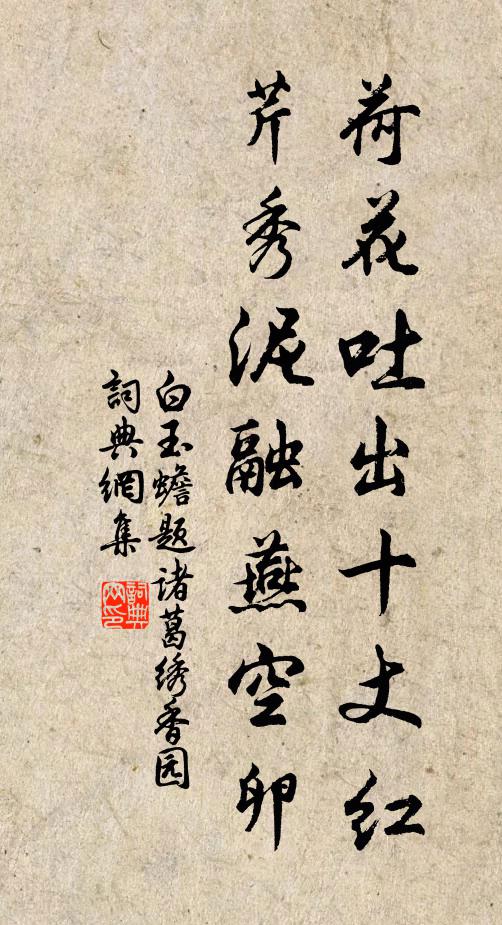 荷花吐出十丈红
芹秀泥融燕空卵
白玉蟾题诸葛绣香园
詞典網集
詞典网印